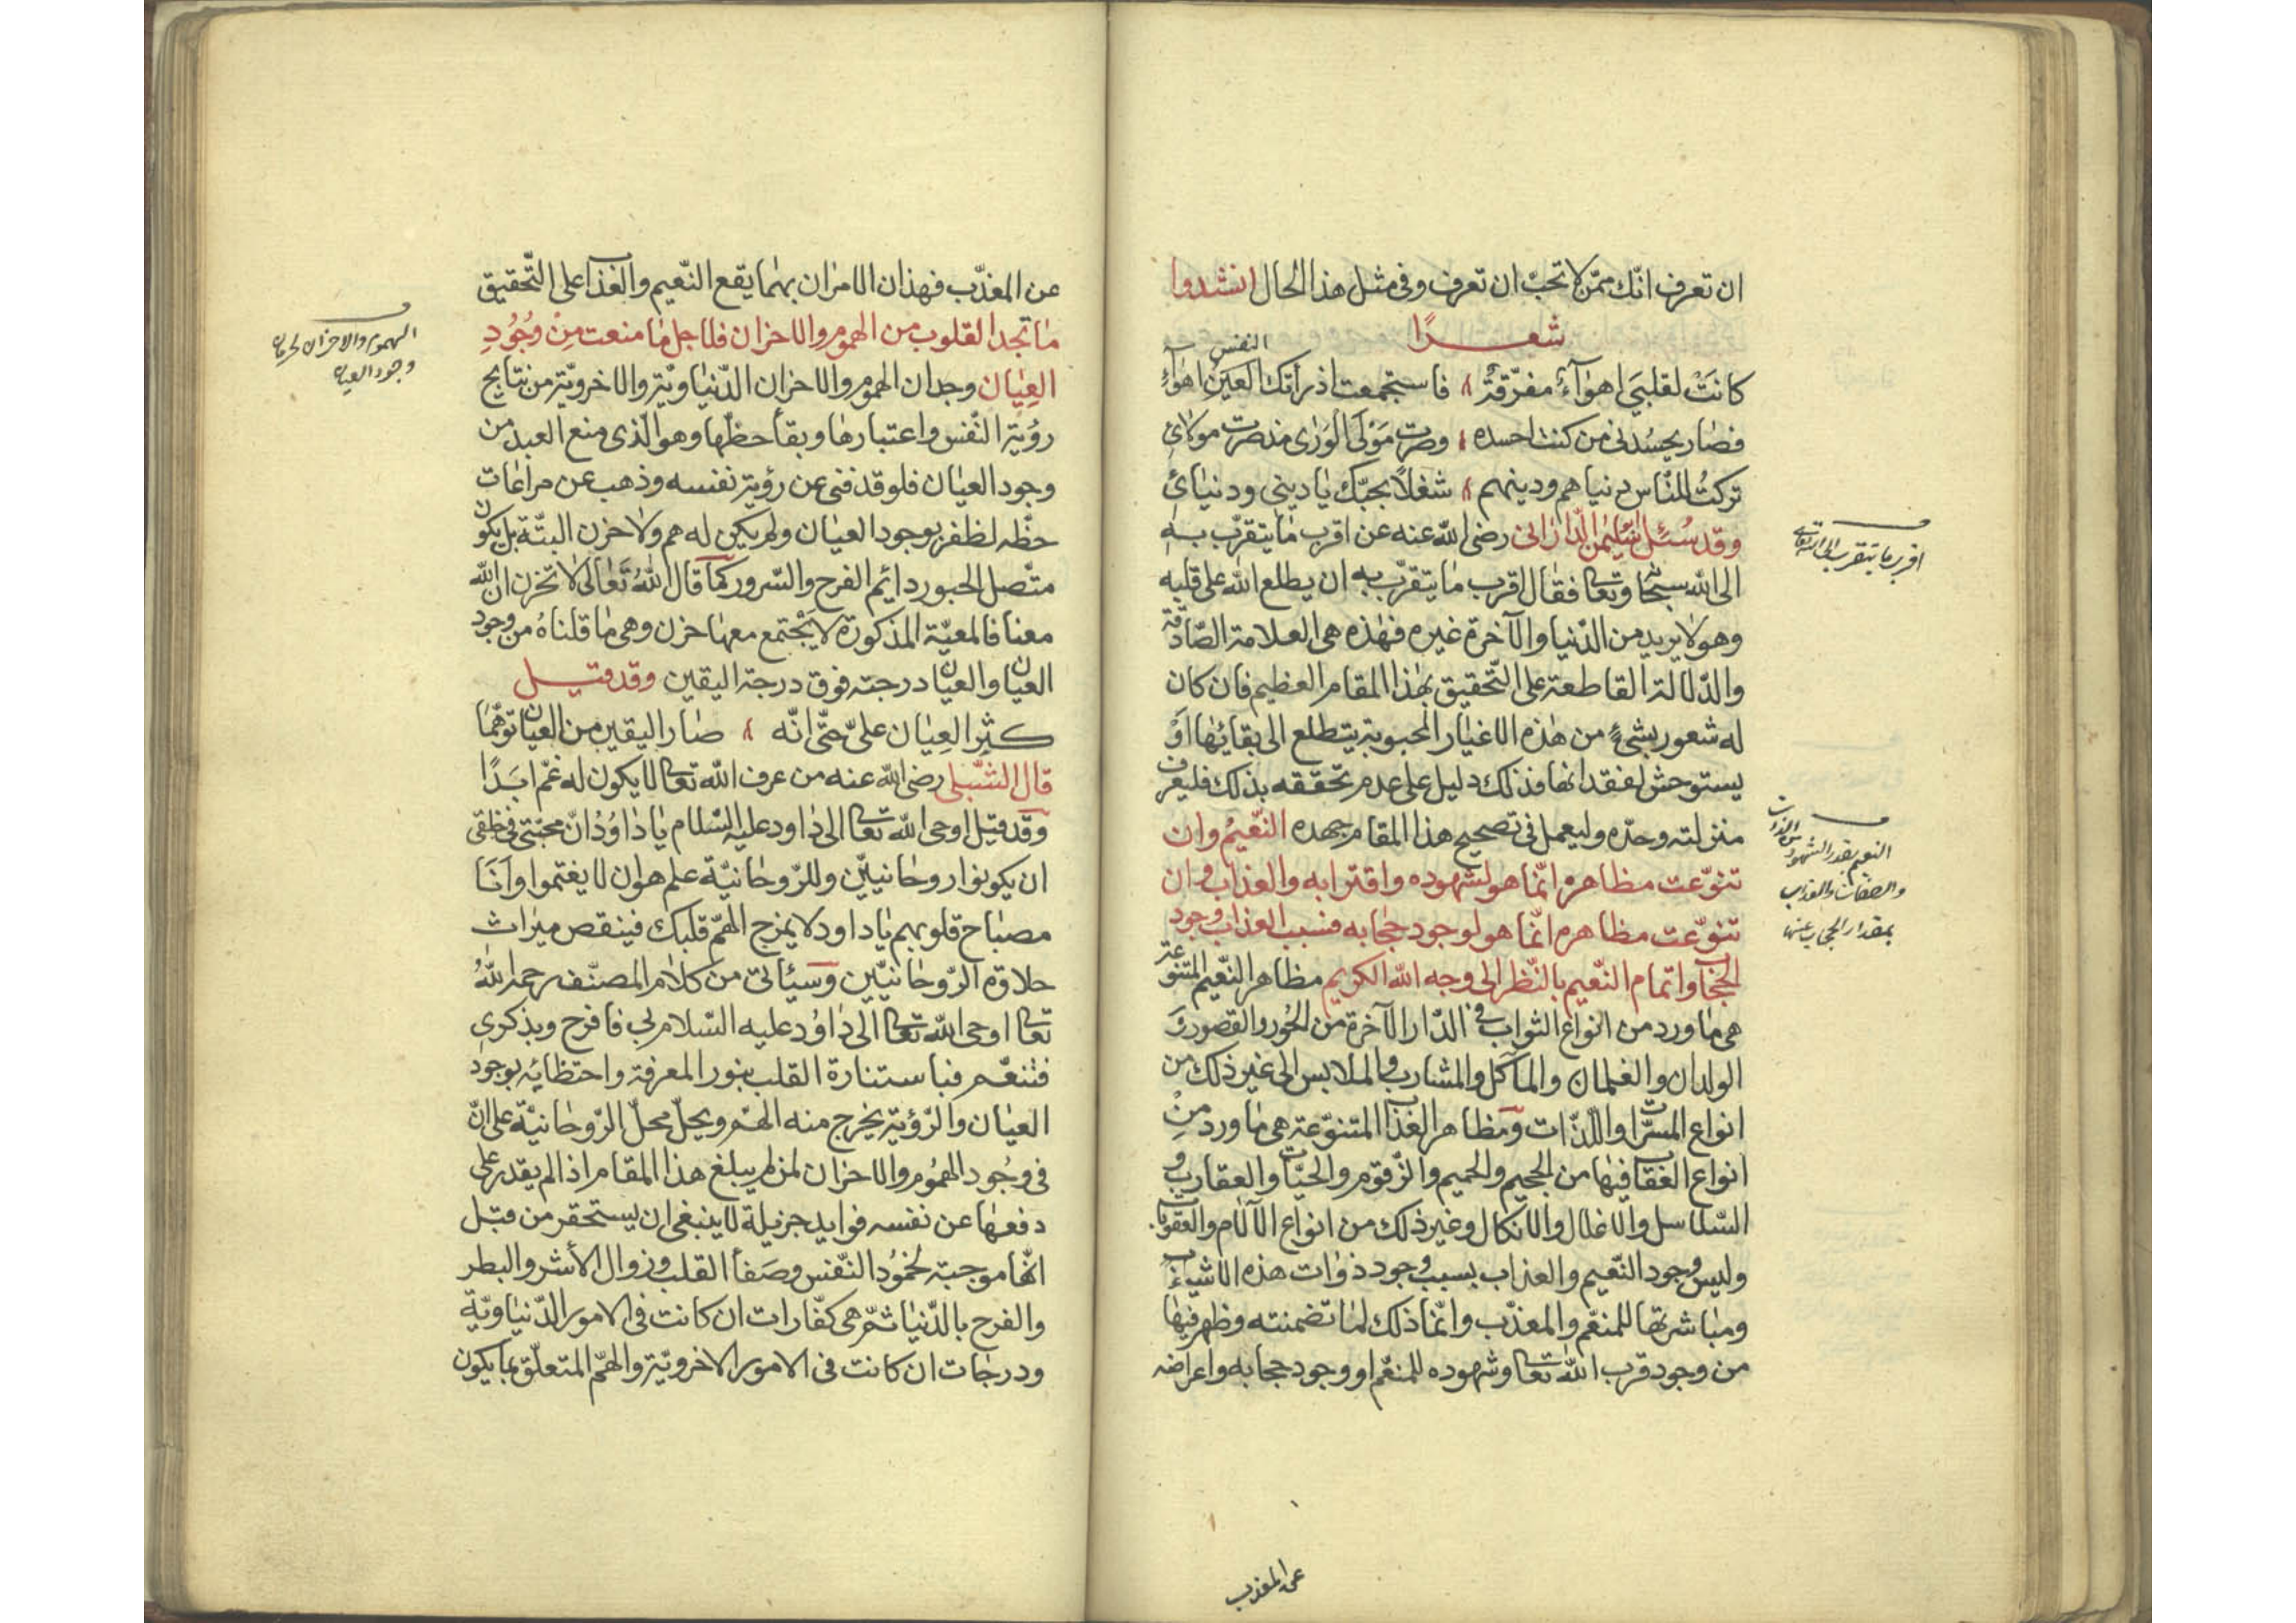 ان تعرف انّك ممّن لا تحبّ ان تعرف وفى مثل هذا الحال انشدوا
شعرًا
النفس
كانَتْ لقلبيَ اهوآءٌ مفرّقةٌ فاستجمعت اذ رأتك العَين اهوآءِ
فصار يحسُدنى من كنت احسده وصرت مَوْلَى الوَرٰى مذ صرت مولائ
تركتُ للنّاس دنياهم ودينهم شغلاً بحبّك يا دينى ودنيائ
وقد سُئل سليمن الدّارانى رضى الله عنه عن اقرب ما يتقرّب به
الى الله سبحٰا وتعٰا فقال اقرب ما يتقرّب به ان يطلع الله على قلبه
وهو لا يريد من الدّنيا والآخرة غيره فهٰذه هى العلامة الصّادقة
والدّلالة القاطعة على التّحقيق بهٰذا المقام العظيم فان كان
له شعور بشئٍ من هٰذه الاغيار المحبوبة يتطلع الى بقائها اَوْ
يستوحش لفقدانها فذلك دليل على عدم تحقّقه بذلك فليعرف
منزلته وحدّه وليعمل فى تصحيح هذا المقام جهده النّعيمُ وان
تنوّعت مظاهره انّما هو لشهوده واقترابه والعذاب وان
تنوّعت مظاهره انّما هو لوجود حجٰابه فسبب العذاب وجود
الحجٰاب واتمام النّعيم بالنّظر الى وجه الله الكريم مظاهر النّعيم المتنوّعة
هى ما ورد من انواع الثواب فى الدّار الآخرة من الحُور والقصور وَ
الولدان والغلمان والمآكل والمشارب والملابس الى غير ذلك من
انواع المسرّات واللذّات ومظاهر العذاب المتنوّعة هى ما ورد مِنْ
انواع العقاب فيها من الجحيم والحميم والزّقوم والحيّات والعقارب و
السّلاسل والاغلال والانكال وغير ذلك من انواع الآلام والعقوبات
وليس وجود النّعيم والعذاب بسبب وجود ذوات هذه الاشيآء
ومباشرتها للمنعّم والمعذّب وانّما ذلك لما تضمنته وظهر فيها
من وجود قرب الله تعٰا وشهوده للمنعّم او وجود حجابه واعراضه
اقرب ما يتقرب الى الله تعالى
النعيم بقدر الشهود من الذات
والصفات والعذاب
بمقدار الحجاب عنها
عن المعذب
عن المعذّب فهذان الامران بهما يقع النّعيم والعذاب على التّحقيق
ما تجد القلوب من الهموم والاحزان فلاجل ما منعت مِنْ وُجُودِ
العِيٰان وجدان الهموم والاحزان الدّنياويّة والاخرويّة من نتايج
رؤية النّفس واعتبارها وبقآ حظّها وهو الّذى منع العبد من
وجود العيٰان فلو قد فنى عن رؤية نفسه وذهب عن مراعات
حظّه لظفر بوجود العيٰان ولم يكن له هم ولا حزن البتّة بل يكون
متّصل الحبور دايم الفرح والسّرور كما قال اللهُ تَعالى لا تحزن ان الله
معنا فالمعيّة المذكورة لا يَجتمع معها حزن وهى ما قلناهُ من وجود
العيان والعيان درجته فوق درجة اليقين وقد قيل
كثر العِيٰان علىّ حتّى انّه صار اليقين من العيان توهّمًا
قال الشّبلى رضى الله عنه من عرف الله تعٰا لا يكون له غمّ ابَدًا
وقد قيل اوحى الله تعٰا الى داود عليه السّلام يا داوُدُ انّ محبّتى فى خلقى
ان يكونوا روحانيّين وللرّوحانيّة علم هو ان لا يغتموا وَاَنَا
مصباح قلوبهم يا داود لا يمزج الهمّ قلبك فينقص ميراث
حلاوة الرّوحانيّين وسيأتى من كلام المصنّف رحمه اللهُ
تعٰا اوحى الله تعٰا الى داوُد عليه السّلام بى فافرح وبذكرى
فتنعّم فباستنارة القلب بنور المعرفة واحتظائه بوجود
العيٰان والرّؤية يخرج منه الهمّ ويحلّ محلّ الرّوحانيّة على انّ
فى وجُود الهمُوم والاحزان لمن لم يبلغ هذا المقام اذا لم يقدر على
دفعها عن نفسه فوايد جزيلة لا ينبغى ان يستحقر من قبل
انّها موجبة لخمُود النّفس وصَفآ القلب وزوال الأشر والبطر
والفرح بالدّنيا ثمّ هى كفّارات ان كانت فى الامور الدّنياويّة
ودرجات ان كانت فى الامور الاخرويّة والهمّ المتعلّق بما يكون
الهموم والاحزان لحرمان
وجود العيان